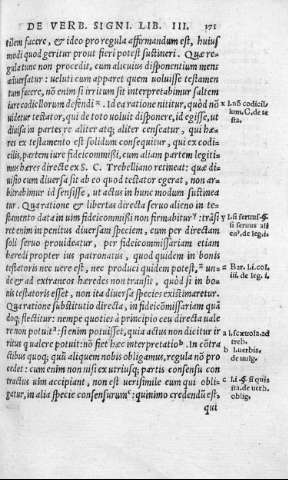 DE VERB. SIGNI. LIB. III. 171
tilem facere, & ideo pro regula affirmandum est, huius
modi quod geritur prout fieri potest sustineri. Quæ re
gula tunc non procedit, cum alicuius disponentium mens
aduersatur: ueluti cum apparet quem uoluisse testamen
tum facere, nõ enim si irritum sit interpretabimur saltem
iure codicillorum defendi. Id ea ratione nititur, quòd nõ
uidetur testator, qui de toto uoluit disponere, id egisse, ut
diuisa in partes re aliter atq; aliter censeatur, qui hæ
res ex testamento est solidum consequitur, qui ex codi-
cillis, partem iure fideicommissi, cum aliam partem legiti
mus hæres directe ex S. C. Trebelliano retineat: quæ di-
uisio cum diuersa sit ab eo quod testator egerat, non ar-
bitrabimur id sensisse, ut actus in hunc modum sustinea
tur. Qua ratione & libertas directa seruo alieno in te-
stamento data in uim fideicommissi non firmabitur: trãsi
ret enim in penitus diuersam speciem, cum per directam
soli seruo prouideatur, per fideicommissariam etiam
hæredi propter ius patronatus, quod quidem in bonis
testatoris nec uere est, nec produci quidem potest, un-
de & ad extraneos hæredes non transit, quòd si in bo-
nis testatoris esset, non ita diuersa species existimaretur.
Qua ratione substitutio directa, in fideicõmissariam quã
doq; flectitur: nempe quoties à principio ceu directa uale
re non potuit: si enim potuisset, quia actus non dicitur ir
ritus qui ualere potuit: nõ fiet hæc interpretatio. In cõtra
ctibus quoq; quũ aliquem nobis obligamus, regula nõ pro
cedet: cum enim non nisi ex utriusq; partis consensu con
tractus uim accipiant, non est uerisimile eum qui obli-
gatur, in alia specie consensurum: quinimo credendũ est,
qui
l. nõ codicil-
lum. C. de te
sta.
Bar. l. i. col.
iii. de leg. i.
a l. scæuola. ad
treb.
b l. uerbis.
de uulg.
sta. de uerb.
oblig.